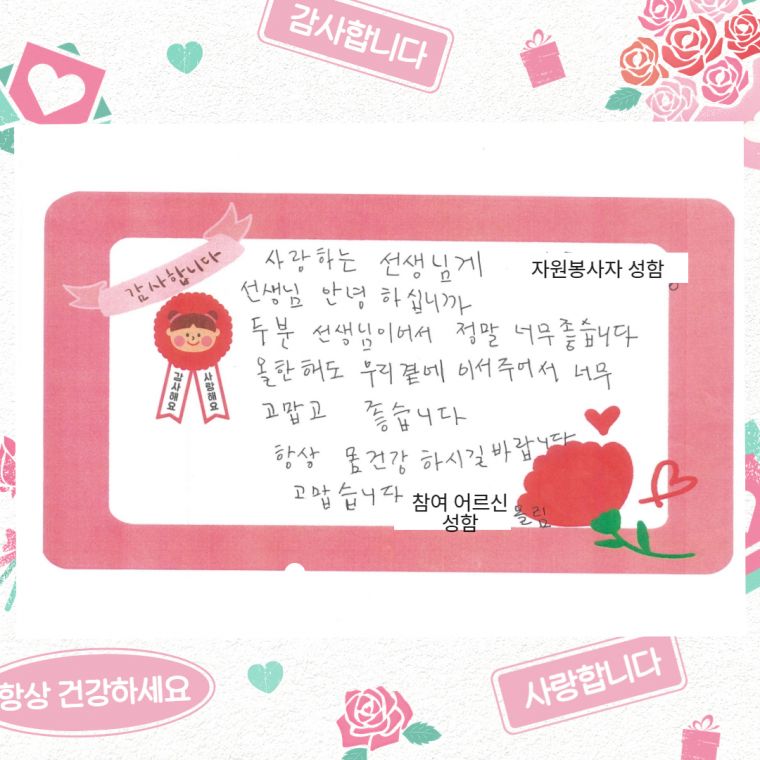 감사합니다
감사합니다
사랑하는 선생님게
자원봉사자 성함
선생님 안녕 하십니까
두분 선생님이어서 정말 너무 좋습니다
올한해도 우리곁에 이서주어서 너무
고맙고 좋습니다
항상 몸건강 하시길 바랍니다
고맙습니다
참여 어르신
성함
올림
감사해요
사랑해요
항상 건강하세요
사랑합니다